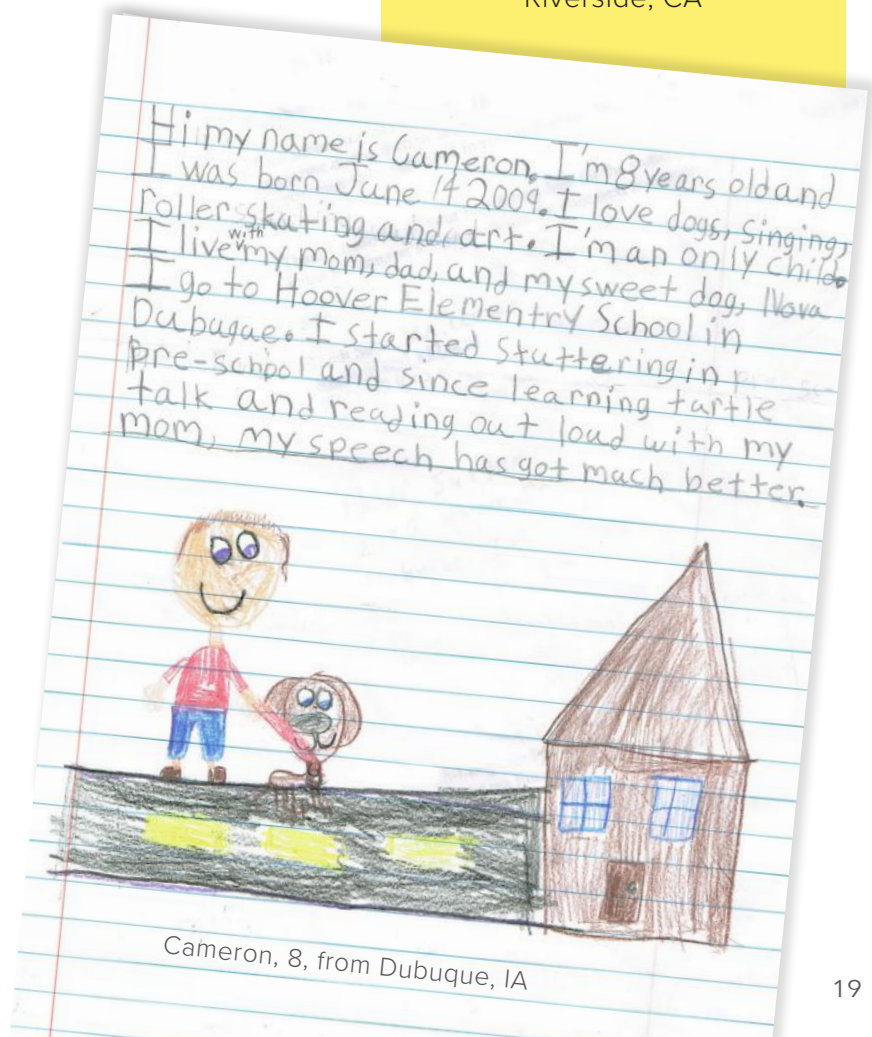 Riverside, CA
Hi my name is Cameron. I'm 8 years old and
I was born June 14 2009. I love dogs, singing,
roller skating and art. I'm an only child.
I live with my mom, dad, and my sweet dog, Nova
I go to Hoover Elementry School in
Dubuque. I started stuttering in
pre-school and since learning turtle
talk and reading out loud with my
mom, my speech has got mach better.
Cameron, 8, from Dubuque, IA
19